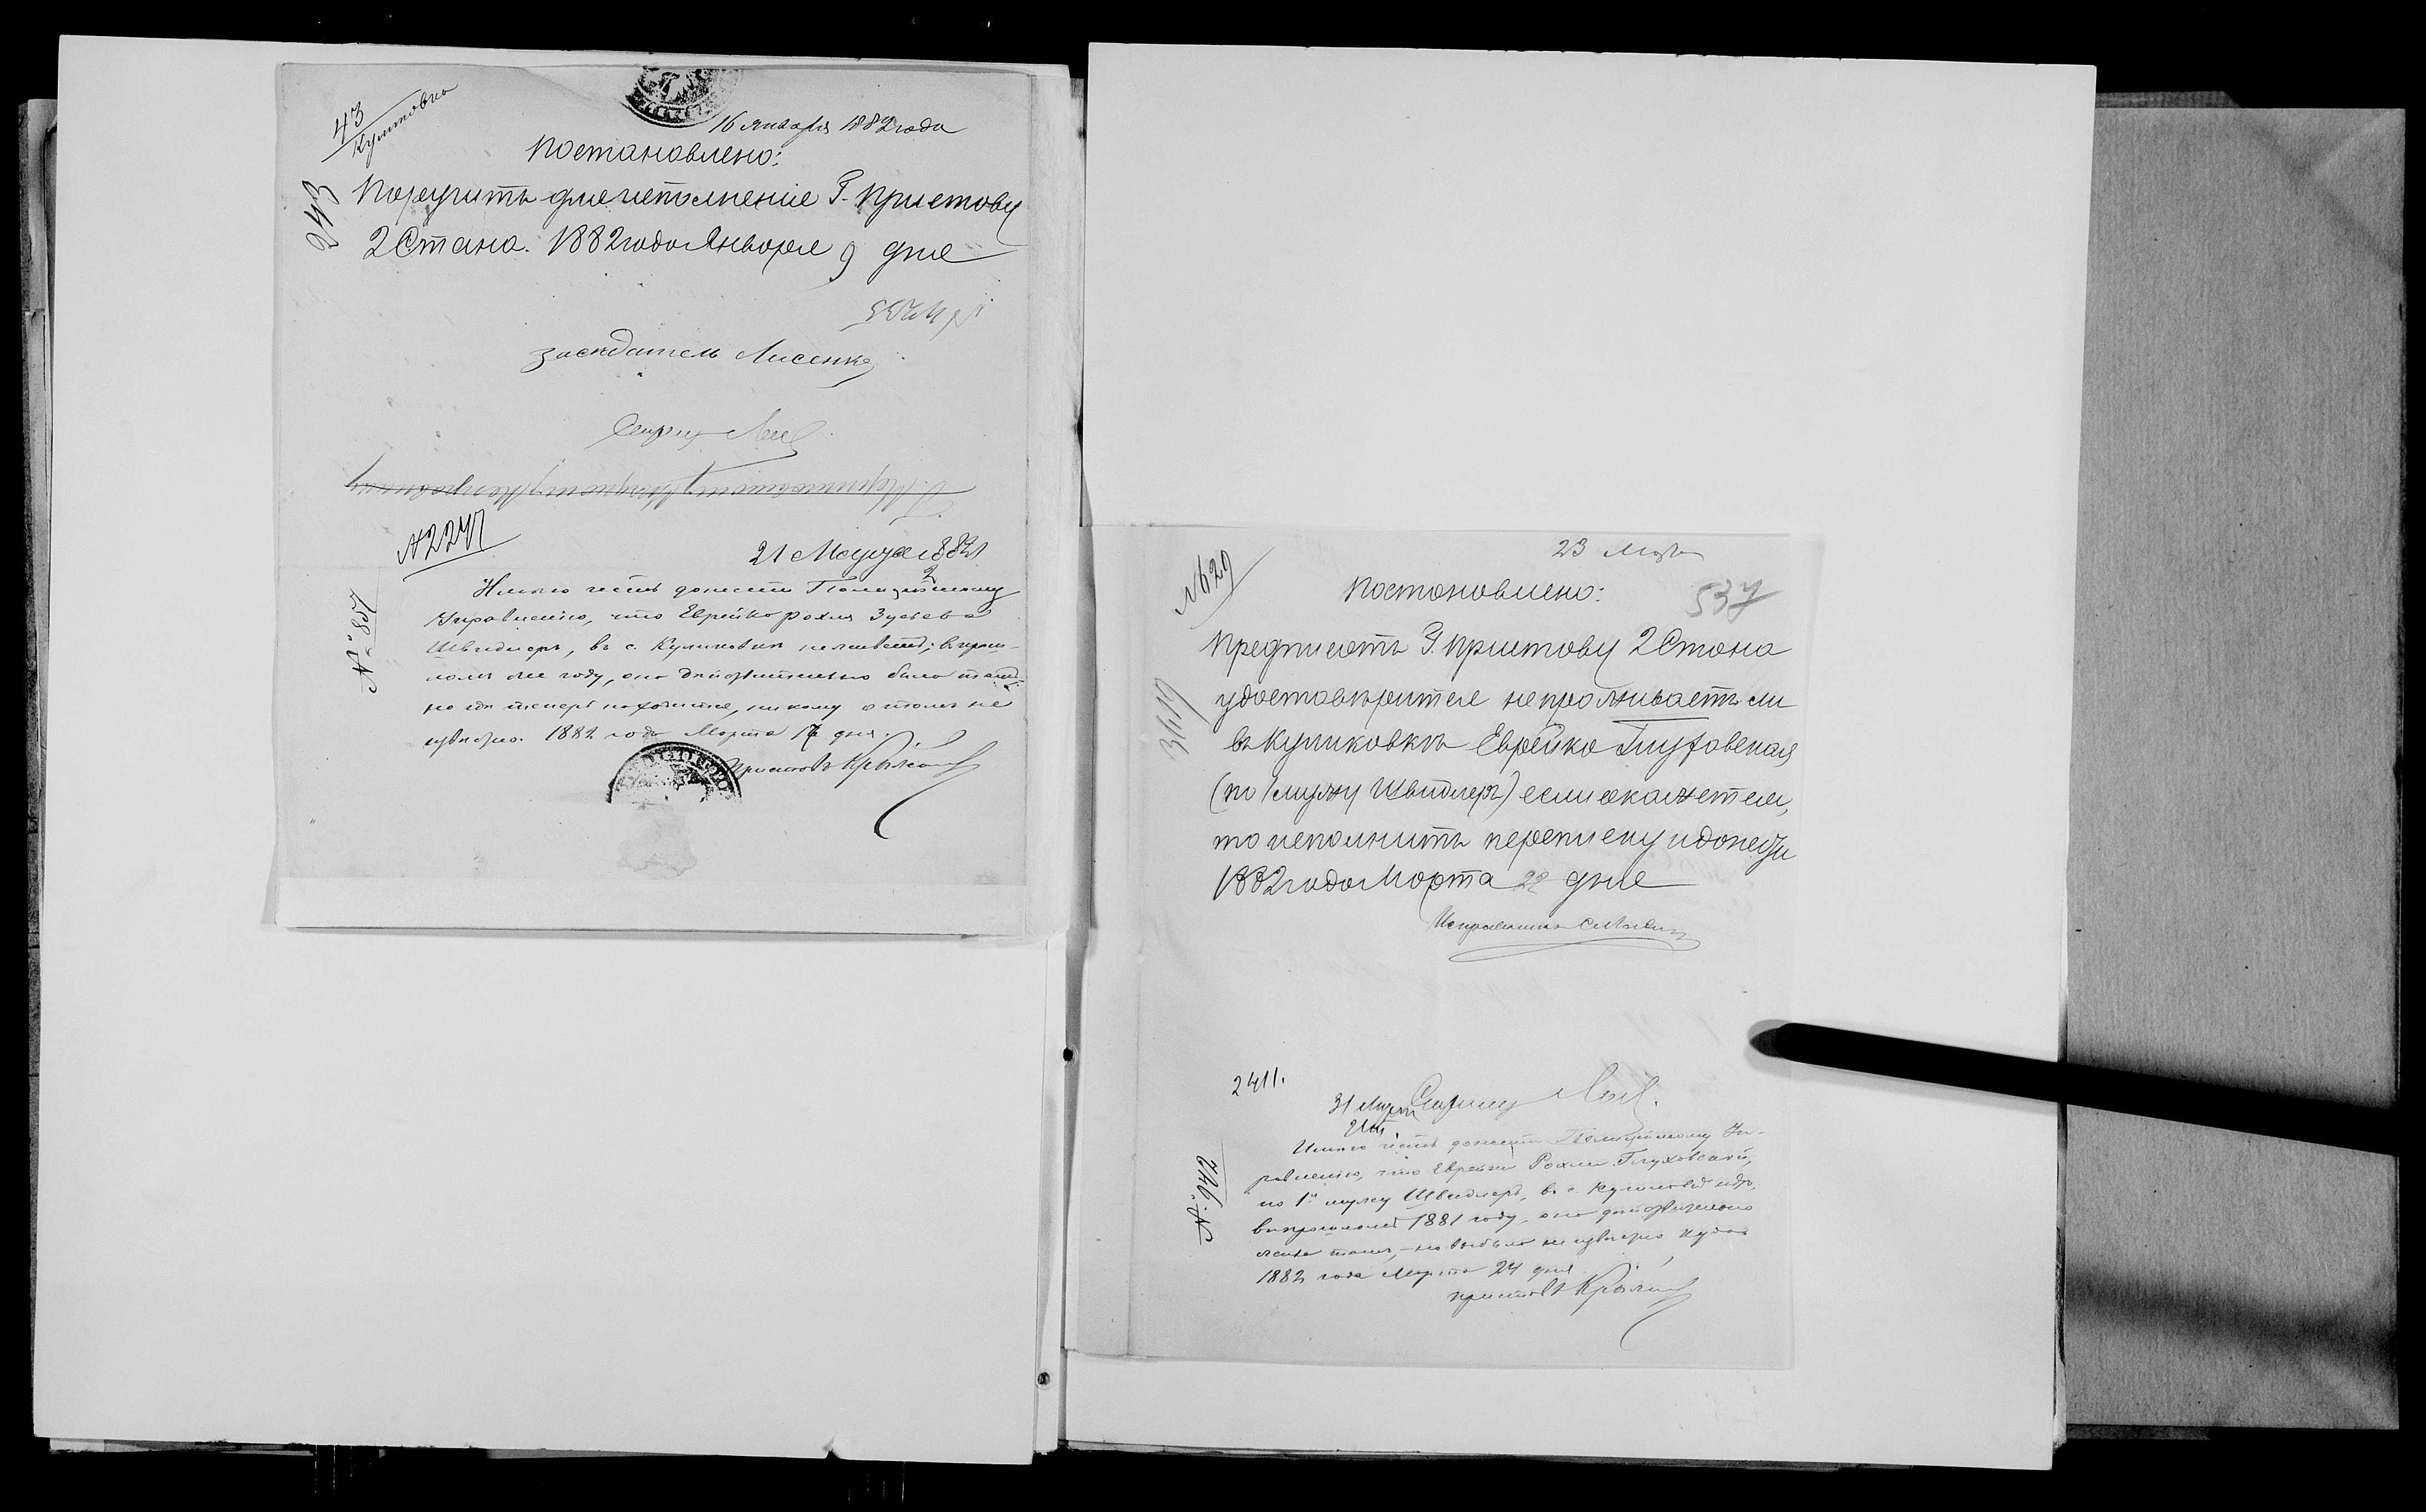 43
Куликовка
16 Января 1882 года
Постановлено:
243
Поручить для исполнения Г. Приставу
2 Стана. 1882 года Января 9 дня
Заседатель Лисенко
№ 2247
21 Марта 1882
№ 857
Имею честь донести Полицейскому
Управлению, что Еврейка Рохля Зусьева
Швидлеръ, въ с. Куликовкѣ не живетъ; въ прош-
ломъ же году, она дѣйствительно была тамъ,
но где теперь находится, никому о томъ не
извѣстно. 1882 года Марта 17 дня.
Приставъ
№ 629
23 Мар
Постановлено:
537
Предписать Г. Приставу 2 Стана
3119
удостовѣриться не проживаетъ ли
въ Куликовкѣ Еврейка Глуховская
(по 1 мужу Швидлеръ) если окажется,
то исполнить переписку и донести
1882 года Марта 22 дня
Исправникъ
2411.
31 Марта
№ 946
Имею честь донести Полицейскому Уп-
равлению, что Еврейки Рохли Глуховской,
по 1му мужу Швидлеръ, въ с. Куликовкѣ нѣтъ,
въ прошломъ 1881 году, она действительно
жила тамъ, но выбыла не извѣстно куда
1882 года Марта 24 дня
Приставъ